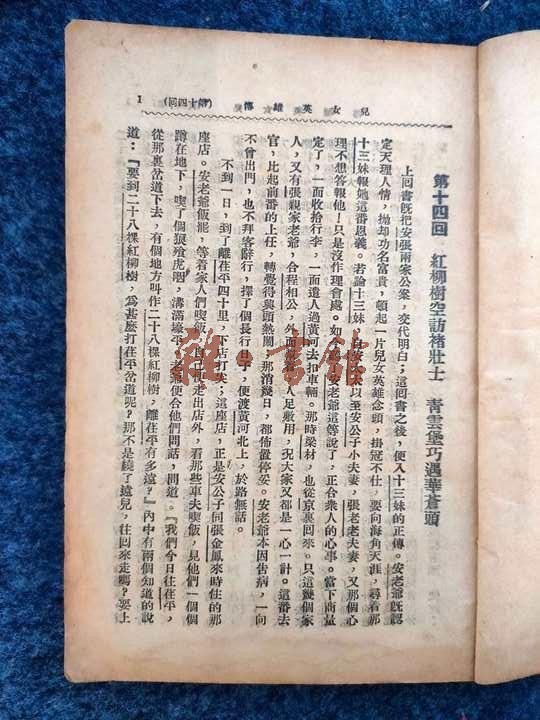 兒女英雄傳 (第十四回) 1
第十四回 紅柳樹空訪褚壯士 青雲堡巧遇華蒼頭
上回書既把安張兩家公案，交代明白；這回書之後，便入十三妹的正傳。安老爺既認
定天理人情，拋却功名富貴，頓起一片兒女英雄念頭，掛冠不仕，要向海角天涯，尋着那
十三妹報她這番恩義。若論十三妹，自安太太以至安公子小夫妻，張老老夫妻，又那個心
理不想答報他！只是沒作理會處。如 了安老爺這等說了，正合衆人的心事。當下商量
定了，一面收拾行李，一面遣人過黃河去扣車輛。那時梁材，也從京裏回來。只這幾個家
人，又有張親家老爺，合程相公，外面 人足敷用，况大家又都是一心一計。這番去
官，比起前番的上任，轉覺得興頭熱鬧。那消幾日，都佈置停妥。安老爺本因告病，一向
不曾出門，也不拜客辭行，擇了個長行日子，便渡黃河北上，於路無話。
不到一日，到了離茌平四十里，下店打尖；這座店，正是安公子同張金鳳來時住的那
座店。安老爺飯罷，等着家人們喫飯，自己便走出店外，看那些車夫喫飯，見他們一個個
蹲在地下，喫了個狼飧虎嚥，溝滿壕平。老爺便合他們閒話，問道。『我們今日往茌平，
從那裏岔道下去，有個地方叫作二十八棵紅柳樹，離茌平有多遠？』內中有兩個知道的說
道：『要到二十八棵紅柳樹，爲甚麼打茌平岔道呢？那不是繞了遠兒，往回來走嗎？要上
雜書館